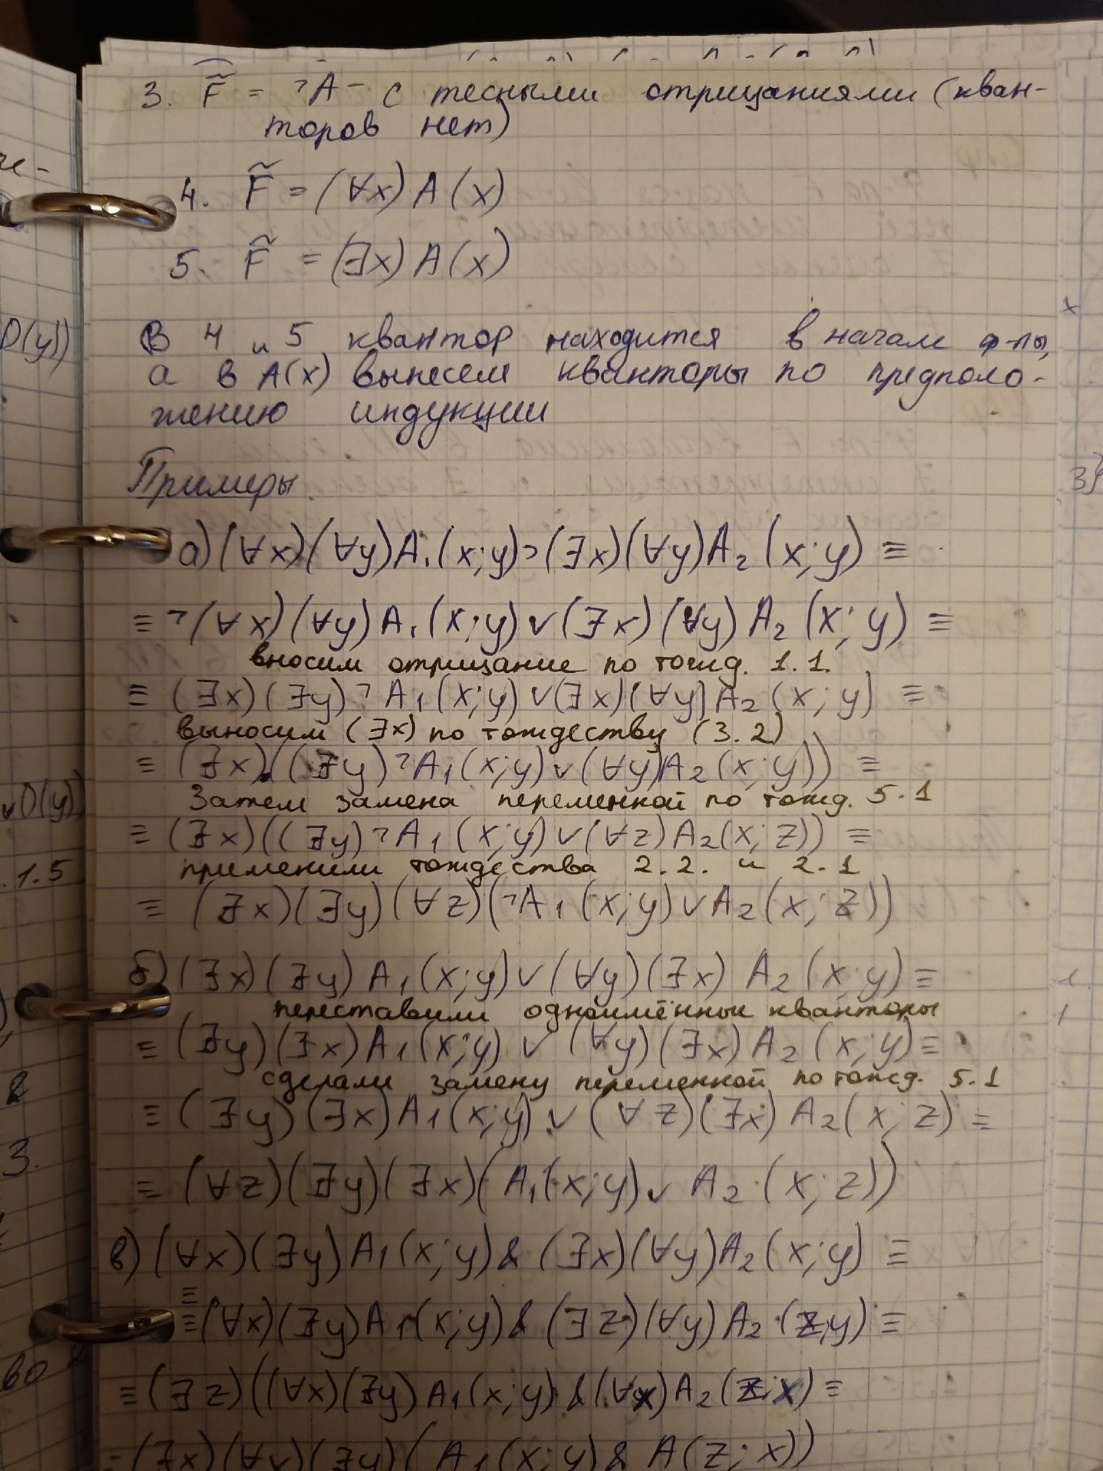 3. F̃ = ¬A - с тесными отрицаниями (кван-
торов нет)
4. F̃ = (∀x) A(x)
5. F̃ = (∃x) A(x)
В 4 и 5 квантор находится в начале ф-лы,
а в A(x) вынесем кванторы по предполо-
жению индукции
Примеры.
а) (∀x)(∀y)A₁(x;y)⊃(∃x)(∀y)A₂(x;y) ≡
≡ ¬(∀x)(∀y)A₁(x;y)∨(∃x)(∀y)A₂(x;y) ≡
вносим отрицание по тожд. 1.1.
≡ (∃x)(∃y)¬A₁(x;y)∨(∃x)(∀y)A₂(x;y) ≡
выносим (∃x) по тождеству (3.2)
≡ (∃x)((∃y)¬A₁(x;y)∨(∀y)A₂(x;y)) ≡
Затем замена переменной по тожд. 5.1
≡ (∃x)((∃y)¬A₁(x;y)∨(∀z)A₂(x;z)) ≡
применили тождества 2.2. и 2.1
≡ (∃x)(∃y)(∀z)(¬A₁(x;y)∨A₂(x;z))
б) (∃x)(∃y)A₁(x;y)∨(∀y)(∃x) A₂(x;y) ≡
переставили одноимённые кванторы
≡ (∃y)(∃x)A₁(x;y) ∨ (∀y)(∃x) A₂(x;y) ≡
сделали замену переменной по тожд. 5.1
≡ (∃y)(∃x)A₁(x;y) ∨ (∀z)(∃x) A₂(x;z) ≡
≡ (∀z)(∃y)(∃x)(A₁(x;y) ∨ A₂(x;z))
в) (∀x)(∃y)A₁(x;y)&(∃x)(∀y)A₂(x;y) ≡
≡ (∀x)(∃y)A₁(x;y)&(∃z)(∀y)A₂(z;y) ≡
≡ (∃z)((∀x)(∃y)A₁(x;y)&(∀x)A₂(z;x) ≡
≡ (∃x)(∀x)(∃y)(A₁(x;y)& A(z;x))
D(y))
∨D(y)
1.5
&
3.
во